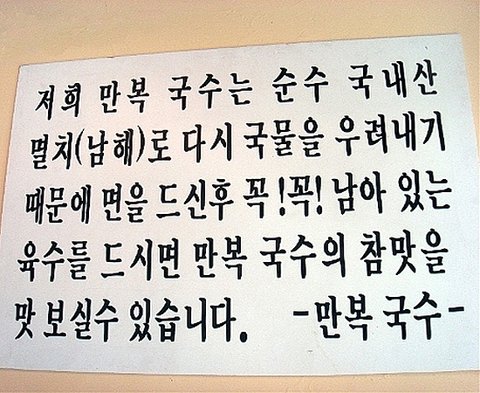 저희 만복 국수는 순수 국내산
멸치(남해)로 다시 국물을 우려내기
때문에 면을 드신후 꼭!꼭! 남아 있는
육수를 드시면 만복 국수의 참맛을
맛 보실수 있습니다. -만복 국수-